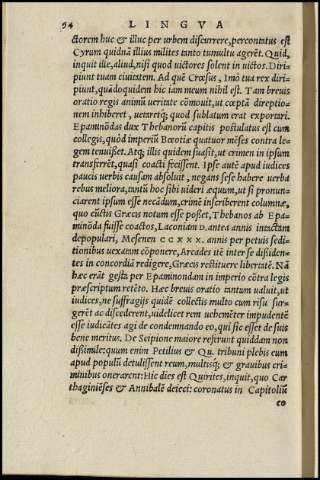 94 LINGVA
ctorem huc & illuc per urbem discurrere, percontatus est
Cyrum quidnã illius milites tanto tumultu agerẽt. Quid,
inquit ille, aliud, nisi quod uictores solent in uictos. Diri=
piunt tuam ciuitatem. Ad quę Crœsus, Imò tua rex diri=
piunt, quãdoquidem hic iam meum nihil est. Tam breuis
oratio regis animũ ueritate cõmouit, ut cœptã direptio=
nem inhiberet, uetaretq; quod sublatum erat exportari.
Epaminõdas dux Thebanorũ capitis postulatus est cum
collegis, quòd imperiũ Bœotiæ quatuor mẽses contra le=
gem tenuißet. Atq; illis quidem suasit, ut crimen in ipsum
transferrẽt, quasi coacti fecissent. Ipse autẽ apud iudices
paucis uerbis causam absoluit, negans sese habere uerba
rebus meliora, tantũ hoc sibi uideri æquum, ut si pronun=
ciarent ipsum esse necãdum, crimẽ inscriberent columnæ,
quo cũctis Græcis notum esse poßet, Thebanos ab Epa=
minõda fuisse coactos, Laconiam D. antea annis intactam
depopulari, Mesenen CCXXX. annis per petuis sedi=
tionibus uexatam cõponere, Arcades itẽ inter se dissiden=
tes in concordiã redigere, Græcis restituere libertatẽ. Nã
hæc erãt gesta per Epaminondam in imperio cõtra legis
præscriptum retẽto. Hæc breuis oratio tantum ualuit, ut
iudices, ne suffragijs quidẽ collectis multo cum risu sur=
gerẽt ac discederent, uidelicet rem uehemẽter impudentẽ
esse iudicãtes agi de condemnando eo, qui sic esset de suis
bene meritus. De Scipione maiore referunt quiddam non
dißimile: quum enim Petilius & Qu. tribuni plebis eum
apud populũ detulissent reum, multisq; & grauibus cri=
minibus onerarent: Hic dies est Quirites, inquit, quo Car
thaginiẽses & Annibalẽ deieci: coronatus in Capitoliũ
co